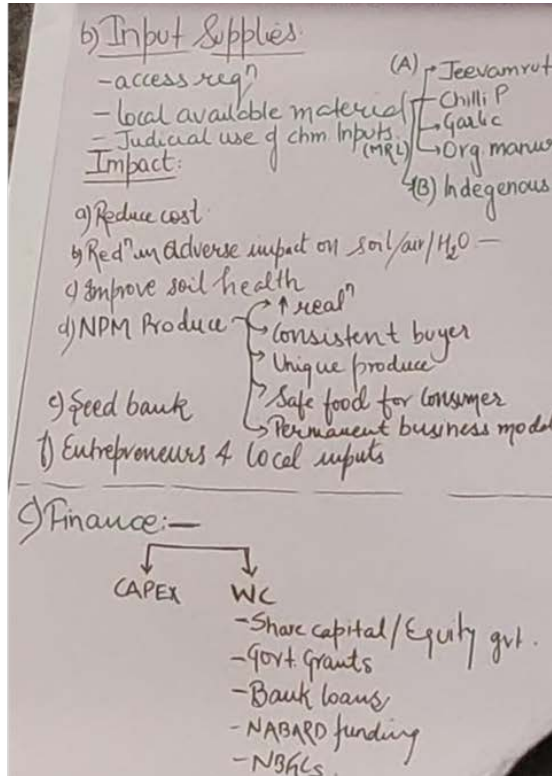 b) Input Supplies
- access reqⁿ
- Local available material
(A) Jeevamrut
Chilli P
Garlic
Org. manur
(B) Indegenous
- Judicial use of chm Inputs. (MRL)
Impact:
a) Reduce cost
b) Redⁿ in adverse impact on soil/air/H₂O —
c) Improve soil health
d) NPM Produce
↑ realⁿ
Consistent buyer
Unique produce
Safe food for consumer
Permanent business model
e) Seed bank
f) Entrepreneurs 4 local inputs
c) Finance:—
CAPEX WC
- Share capital/Equity gvt.
- Govt. Grants
- Bank loans
- NABARD funding